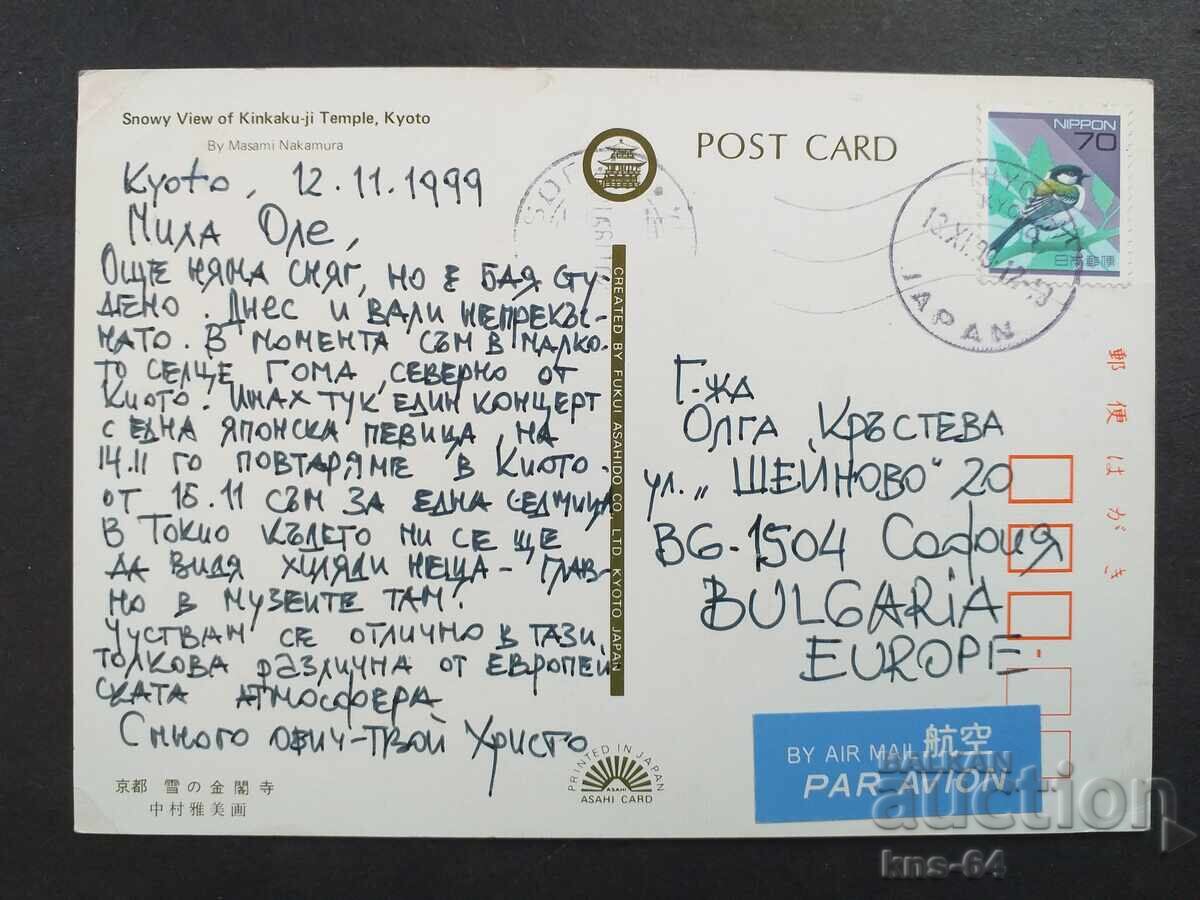 Snowy View of Kinkaku-ji Temple, Kyoto
By Masami Nakamura
Kyoto, 12.11.1999
Мила Оле,
ОЩЕ НЯМА СНЯГ, НО Е БАЯ СТУ-
ДЕНО. ДНЕС И ВАЛИ НЕПРЕКЪС-
НАТО. В МОМЕНТА СЪМ В МАЛКО-
ТО СЕЛЦЕ ГОМА, СЕВЕРНО ОТ
КИОТО. ИМАХ ТУК ЕДИН КОНЦЕРТ
С ЕДНА ЯПОНСКА ПЕВИЦА, НА
14.11 ГО ПОВТАРЯМЕ В КИОТО.
ОТ 15.11 СЪМ ЗА ЕДНА СЕДМИЦА
В ТОКИО КЪДЕТО МИ СЕ ЩЕ
ДА ВИДЯ ХИЛЯДИ НЕЩА - ГЛАВ-
НО В МУЗЕИТЕ ТАМ!
ЧУСТВАМ СЕ ОТЛИЧНО В ТАЗИ,
ТОЛКОВА РАЗЛИЧНА ОТ ЕВРОПЕЙ
СКАТА АТМОСФЕРА
С много обич - твой Христо
京都 雪の金閣寺
中村雅美画
CREATED BY FUKUI ASAHIDO CO., LTD KYOTO JAPAN
PRINTED IN JAPAN
ASAHI
ASAHI CARD
POST CARD
NIPPON
70
日本郵便
13.XI.99.12-18
JAPAN
郵便はがき
Г-жа
ОЛГА КРЪСТЕВА
ул. „ШЕЙНОВО" 20
BG-1504 София
BULGARiA
EUROPE
BY AIR MAIL 航空
PAR AVION
BALKAN
auction
kns-64